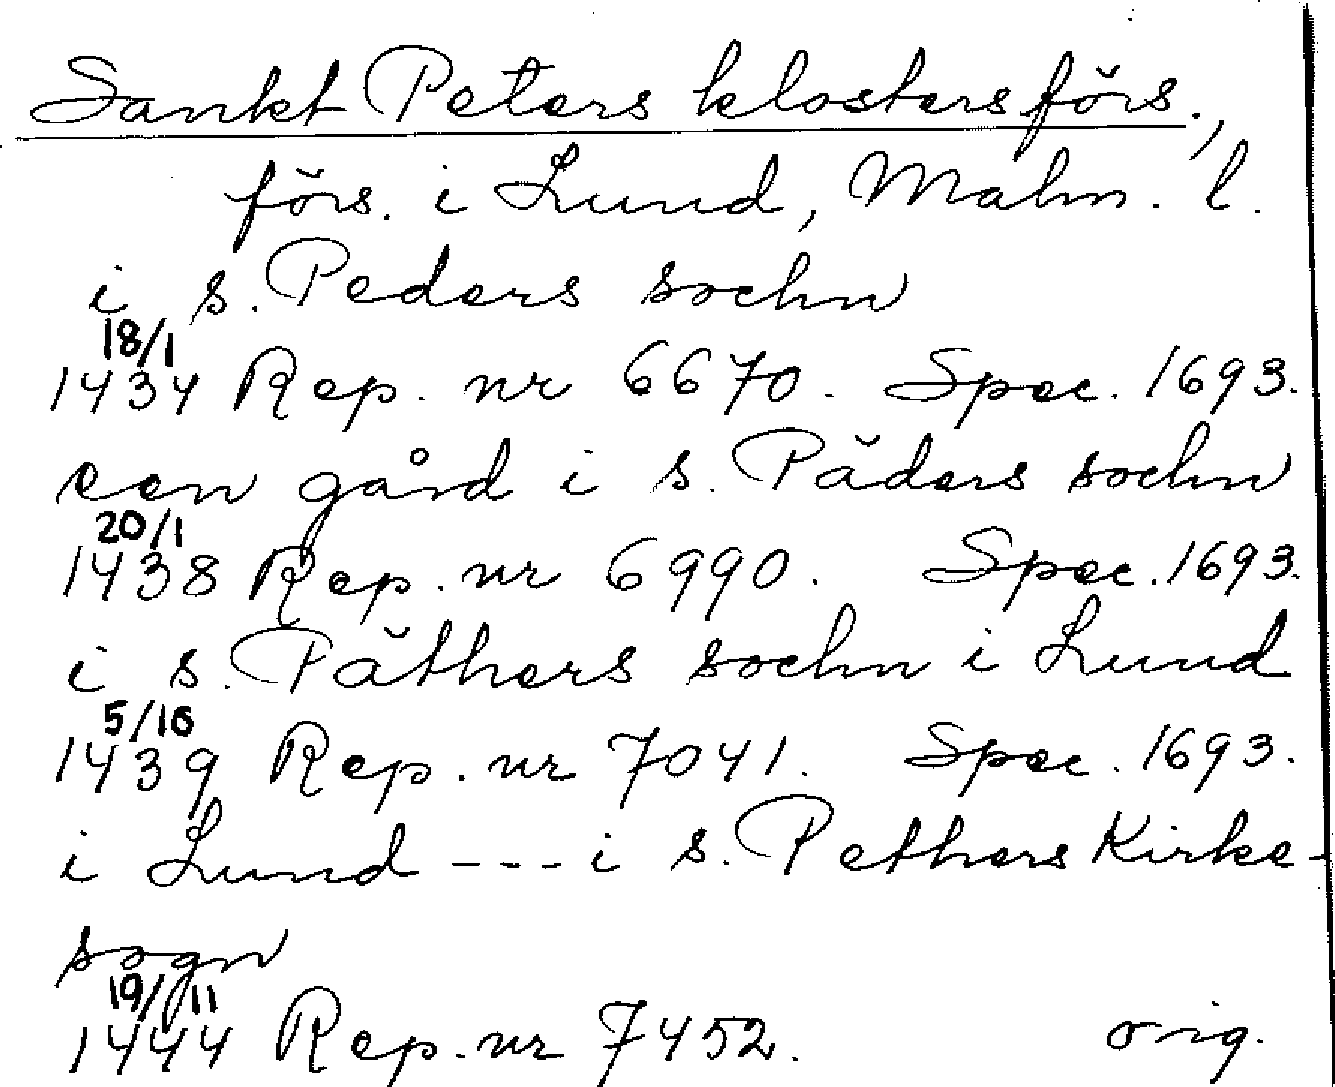 Sankt Peters klostersförs.,
förs. i Lund, Malm. l.
i s. Peders sochn
18/1
1434 Rep. nr 6670. Spec. 1693.
een gård i s. Päders sochn
20/1
1438 Rep. nr 6990. Spec. 1693.
i s. Päthers sochn i Lund
5/10
1439 Rep. nr 7041. Spec. 1693.
i Lund --- i s. Pethers Kirke-
sogn
19/11
1444 Rep. nr 7452. orig.